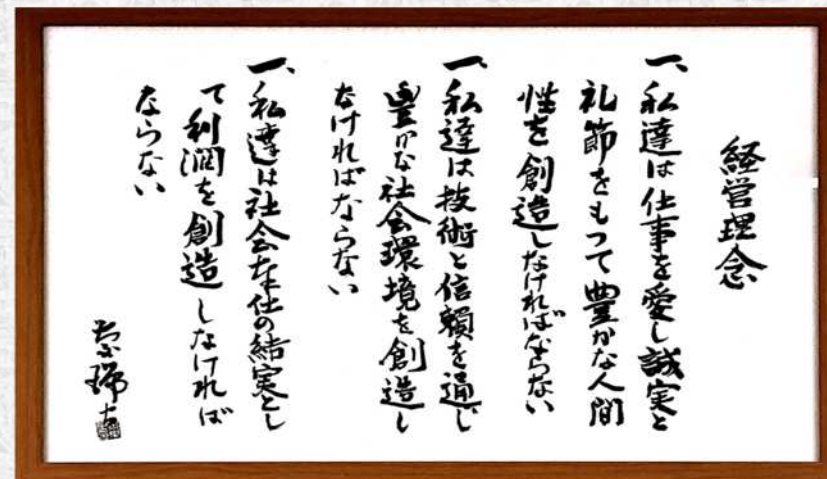 経営理念
一、私達は仕事を愛し誠実と
礼節をもって豊かな人間
性を創造しなければならない
一、私達は技術と信頼を通じ
豊かな社会環境を創造し
なければならない
一、私達は社会奉仕の結実とし
て利潤を創造しなければ
ならない